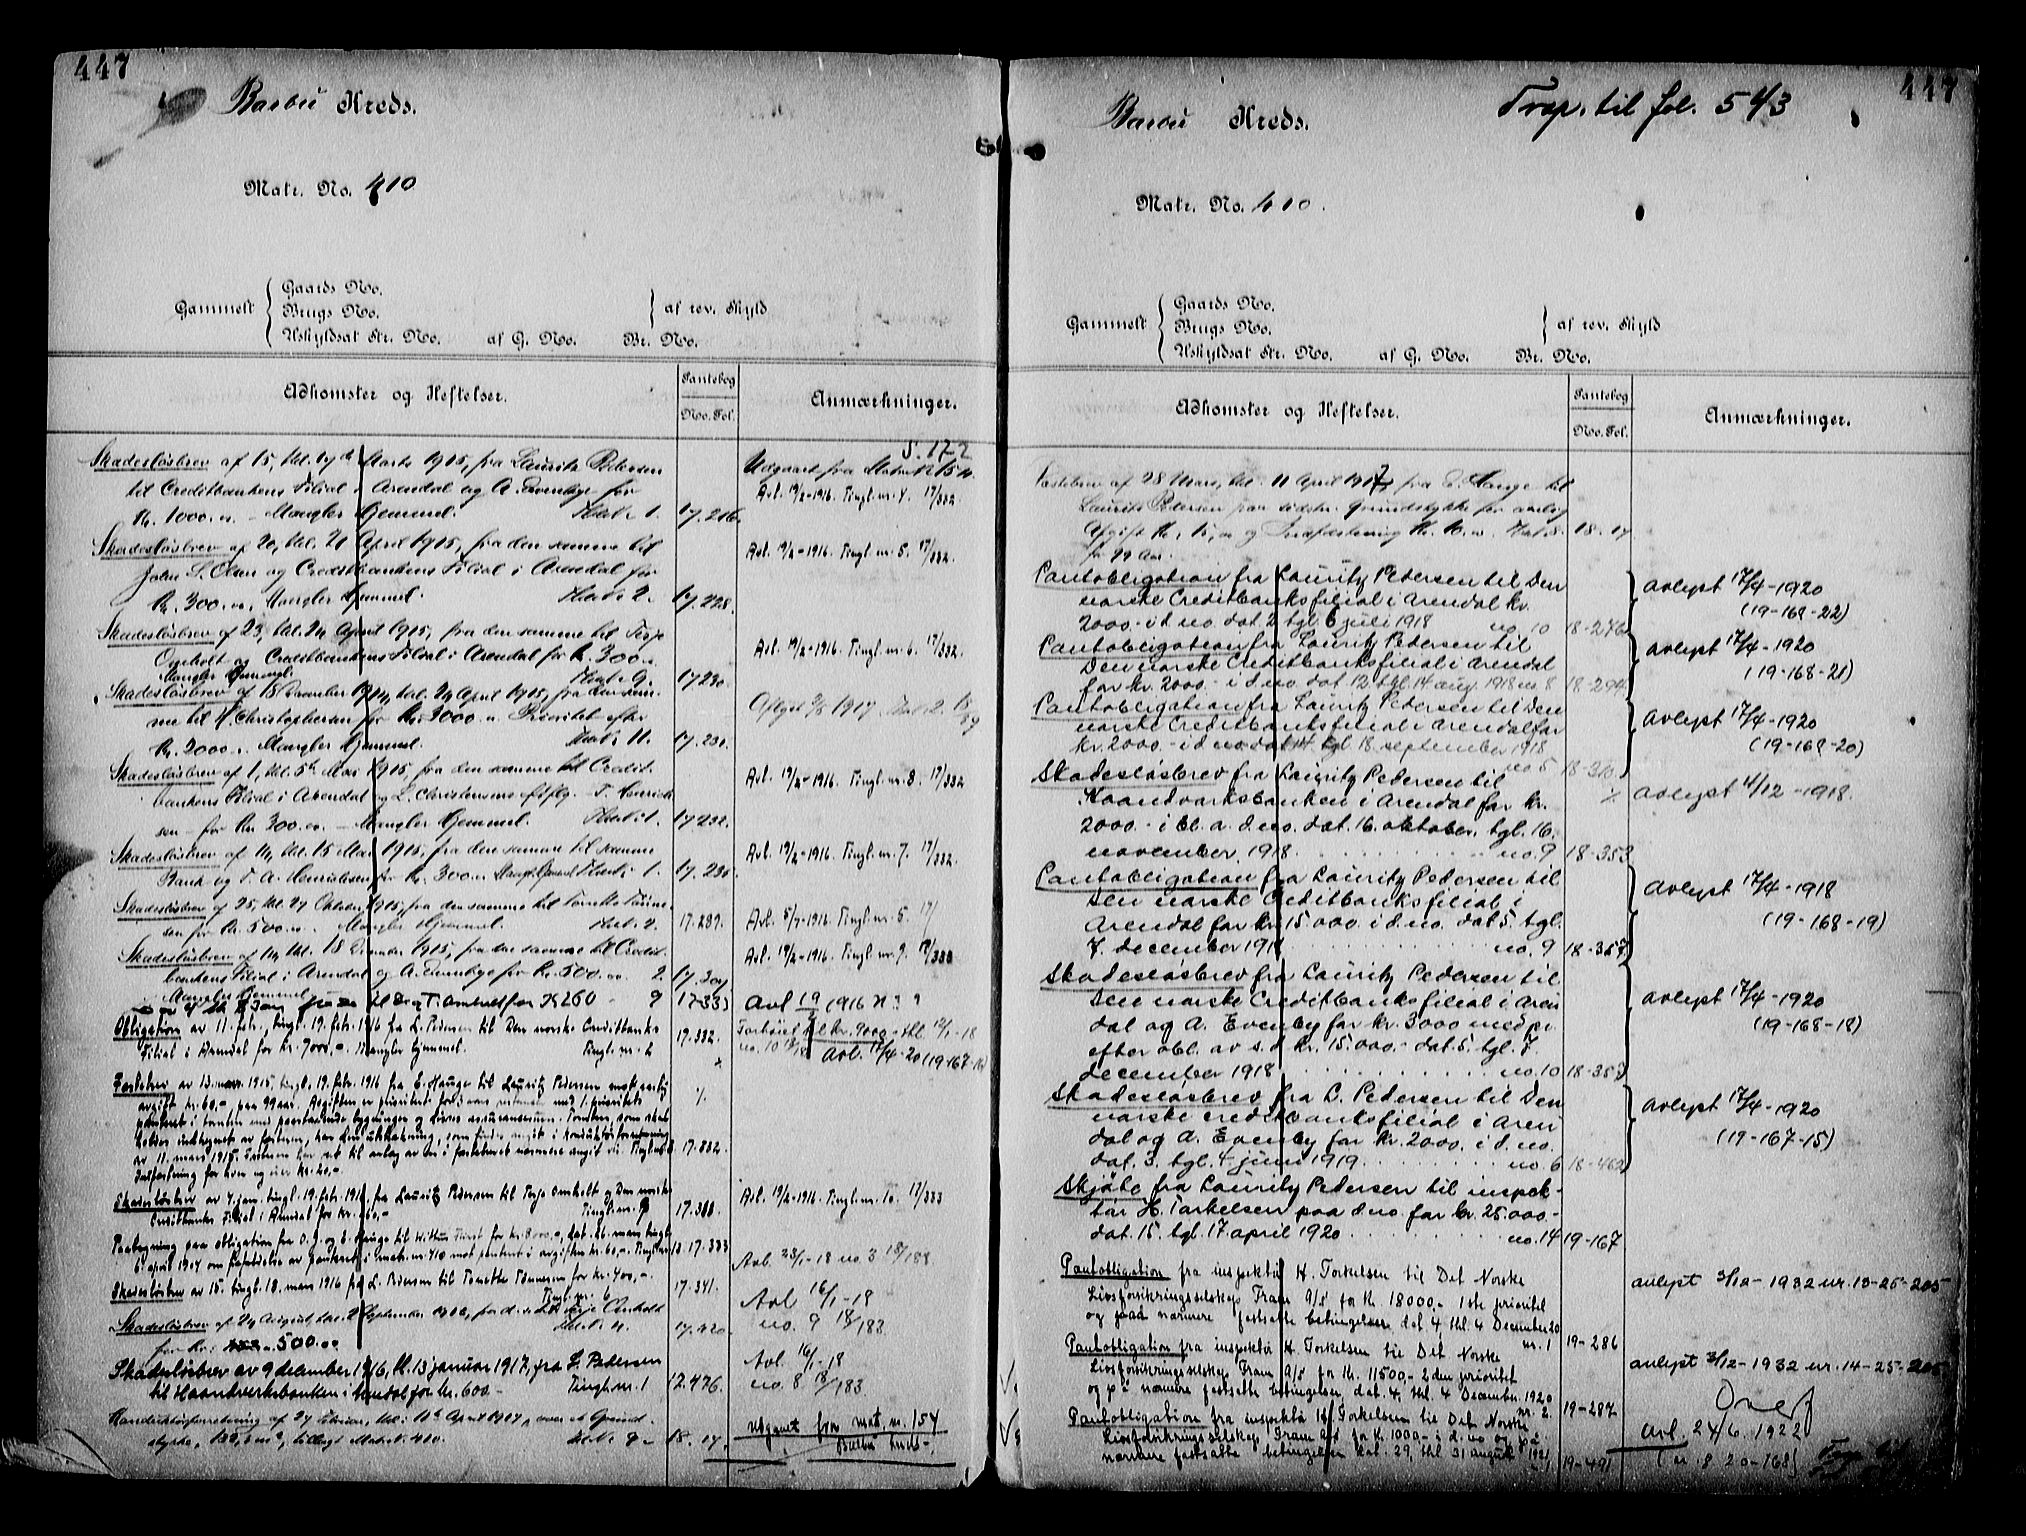 447
Barbu Kreds.
Matr. No. 410
Gammelt
Gaards No.
Brugs No.
Uskyldsat Str. No. af G. No. Br. No.
af rev. Skyld
Adkomster og Heftelser.
Pantebog
No. Fol.
Anmærkninger.
S. 172
Skadesløsbrev af 15, thl. 19de Marts 1915, fra Lauritz Pedersen Udgaaet fra Matr. N. 154.
til Creditbankens Filial i Arendal og A. Evenbye for Avl. 19/2-1916. Tingl. nr. 4. 17/332
Kr. 1000.00 - Mangler Gjenmel. 1. 17.216.
Skadesløsbrev af 20, thl. 21 April 1915, fra den samme til
John S. Olsen og Creditbankens Filial i Arendal for Avl. 19/2-1916. Tingl. nr. 5. 17/332.
Kr. 300.00, Mangler Gjenmel. 2. 17.228.
Skadesløsbrev af 23, thl. 24 April 1915, fra den samme til Terje
Omholt og Creditbankens Filial i Arendal for Kr. 300.00 Avl. 19/2-1916. Tingl. nr. 6. 17/332.
Mangler Gjenmel. 9. 17.230.
Skadesløsbrev af 18 December 1914, thl. 24 April 1915, fra den sam-
me til Christophersen for Kr. 3000.00 Prioritet efter Aflyst 1917
Kr. 2000.00. Mangler Gjenmel. 11. 17.231.
Skadesløsbrev af 1, thl. 5te Mai 1915, fra den samme til Credit-
bankens Filial i Arendal og L. Christensens eftflg. T. Henrik- Avl. 19/2-1916. Tingl. nr. 8. 17/332
sen - for Kr. 300.00 - Mangler Gjenmel. 1. 17.232.
Skadesløsbrev af 14, thl. 15 Mai 1915, fra den samme til samme Avl. 19/2-1916. Tingl. nr. 7. 17/332.
Bank og T. A. Henriksen for Kr. 300.00 Mangl. Gjenmel 1.
Skadesløsbrev af 25, thl. 27 Oktober 1915, fra den samme til Tomette Tønne-
sen for Kr. 500.00. Mangler Gjenmel. 2. 17.287. Avl. 5/7-1916. Tingl. nr. 5. 17/
Skadesløsbrev af 14, thl. 18 December 1915, fra den samme til Credit-
bankens Filial i Arendal og A. Evenbye for Kr. 500.00 2. Avl. 19/2-1916. Tingl. nr. 9. 17/333
Mangler Gjenmel
for K 260 9 17-333 Avl 19/2 1916 N: 9
Obligation av 11. febr., tingl. 19. febr. 1916 fra L. Pedersen til Den norske Creditbanks 17.332.
Filial i Arendal for kr. 9000,-. Mangler Gjenmel. Tingl. nr. 2 Avl. 17/4-20 (19-167-16)
Festebrev av 13. mars 1915, tingl. 19. febr. 1916 fra E. Hauge til Lauritz Pedersen mot aarlig
avgift kr. 60,- paa 99 aar. Avgiften er prioritert for 3 aars restanser med 1. prioritets
panteret i tomten med paastaaende bygninger og disses assuransesum. Tomten, som skal
holdes indhegnet av festeren, har den utstrækning, som findes angit i konduktørforretning
av 11. mars 1915. 17.332.
Indfæstning for hver og eier kr. 20,-
Skadesløsbrev av 4. jan. tingl. 19. febr. 1916 fra Lauritz Pedersen til Terje Omholt og Den norske Avl. 19/2-1916. Tingl. nr. 10. 17/333
Creditbanks Filial i Arendal for kr. 260,-. Tingl. nr. 9 17.333.
Paategning paa obligation fra O. J. og E. Hauge til for kr. 8000,-, dat. 26. mars tingl.
6. april 1904 om frafaldelse av panteret i matr. nr. 410 mot panteret i avgiften kr. 60,-. 17.333 Avl. 23/1-18 no 3 18/188
Skadesløsbrev av 15. tingl. 18. mars 1916 fra L. Pedersen til Tomette Tønnesen for kr. 400,-. 17.341.
Tingl. nr. 6 Avl 16/1-18
no. 9 18/183
Skadesløsbrev af 24 August, thl. 2 September 1916, fra d. s. til Terje Omholt 17.420.
for Kr. 500.00
Skadesløsbrev av 9 december 1916, tl. 13 januar 1917, fra L. Pedersen Avl. 16/1-18
til Haandverksbanken i Arendal for kr. 600.- Tingl. nr. 1 17.476. no. 8 18/183.
Konduktørforretning af 27 Februar, thl. 11te April 1917, over et Grund-
stykke, tillagt Matr. N. 410. 9 - 18.17. Utgaaet fra mat. nr. 154
Barbu kreds-.
447
Barbu Kreds.
Trsp. til fol. 543
Matr. No. 410.
Gammelt
Gaards No.
Brugs No.
Uskyldsat Str. No. af G. No. Br. No.
af rev. Skyld
Adkomster og Heftelser.
Pantebog
No. Fol.
Anmærkninger.
Festebrev af 28 Mars, thl. 11 April 1917, fra E. Hauge til
Lauritz Pedersen paa sidstn. Grundstykke for aarlig
Afgift Kr. 15,00 og Indfæstning Kr. 10.00. 8. 18-17
for 99 Aar.
Pantobligation fra Lauritz Pedersen til Den
norske Creditbanks filial i Arendal kr. avlyst 17/4-1920
2000.- i d. no. dat. 2 tgl. 6 juli 1918 no 10 18-276 (19-168-22)
Pantobligation fra Lauritz Pedersen til
Den norske Creditbanks filial i Arendal avlyst 17/4-1920
for kr. 2000.- i d. no. dat. 12. tgl. 14 aug. 1918 no 8 18-294 (19-168-21)
Pantobligation fra Lauritz Pedersen til Den
norske Creditbanks filial i Arendal for avlyst 17/4-1920
kr. 2000.- i d no dat 14. tgl 18. september 1918 (19-168-20)
no 5 18-310
Skadesløsbrev fra Lauritz Pedersen til
Haandverksbanken i Arendal for kr. avlyst 4/12-1918.
2000.- i bl. a. d. no. dat. 16. oktober. tgl. 16.
november 1918. no. 9 18-353
Pantobligation fra Lauritz Pedersen til
Den norske Creditbanks filial i avlyst 17/4-1918
Arendal for kr. 15000.- i d. no. dat. 5. tgl. (19-168-19)
7. december 1918 no. 9 18-357
Skadesløsbrev fra Lauritz Pedersen til
Den norske Creditbanks filial i Aren avlyst 17/4-1920
dal og A. Evenby for kr. 3000 med pr. (19-168-18)
efter obl. av s. d. kr. 15.000.- dat. 5. tgl. 7.
december 1918 no. 10 18-357
Skadesløsbrev fra L. Pedersen til Den
norske creditbanks filial i Aren avlyst 17/4-1920
dal og A. Evenby for kr. 2000. i d. no. (19-167-15)
dat. 3. tgl. 4 juni 1919. no. 6 18-462
Skjøte fra Lauritz Pedersen til inspek-
tør H. Torkelsen paa d. no. for kr. 25000.-
dat. 15. tgl. 17 april 1920 no. 14 19-167
Pantobligation fra inspektør H. Torkelsen til Det Norske
Livsforsikringsselskap Fram A/S for kr. 18000,- 1ste prioritet avlyst 3/12-1932 nr. 13-25-205
og paa nærmere fastsatte betingelser dat 4, thl. 4 December 20
nr. 1 19-286
Pantobligation fra inspektør H. Torkelsen til Det Norske
Livsforsikringsselskap Fram A/S for kr. 11500,- 2den prioritet avlyst 3/12-1932 nr. 14-25-205
og på nærmere fastsatte betingelser, dat. 4, thl. 4 December. 1920
nr. 2. 19-287
Pantobligation fra inspektør H. Torkelsen til Det Norske
Livsforsikringsselskap Fram A/S for kr. 1000.- i d. no og på avl. 24/6 1922
nærmere fastsatte betingelser dat. 29, thl 31 august 1921 19-491 (nr. 8 20-168)